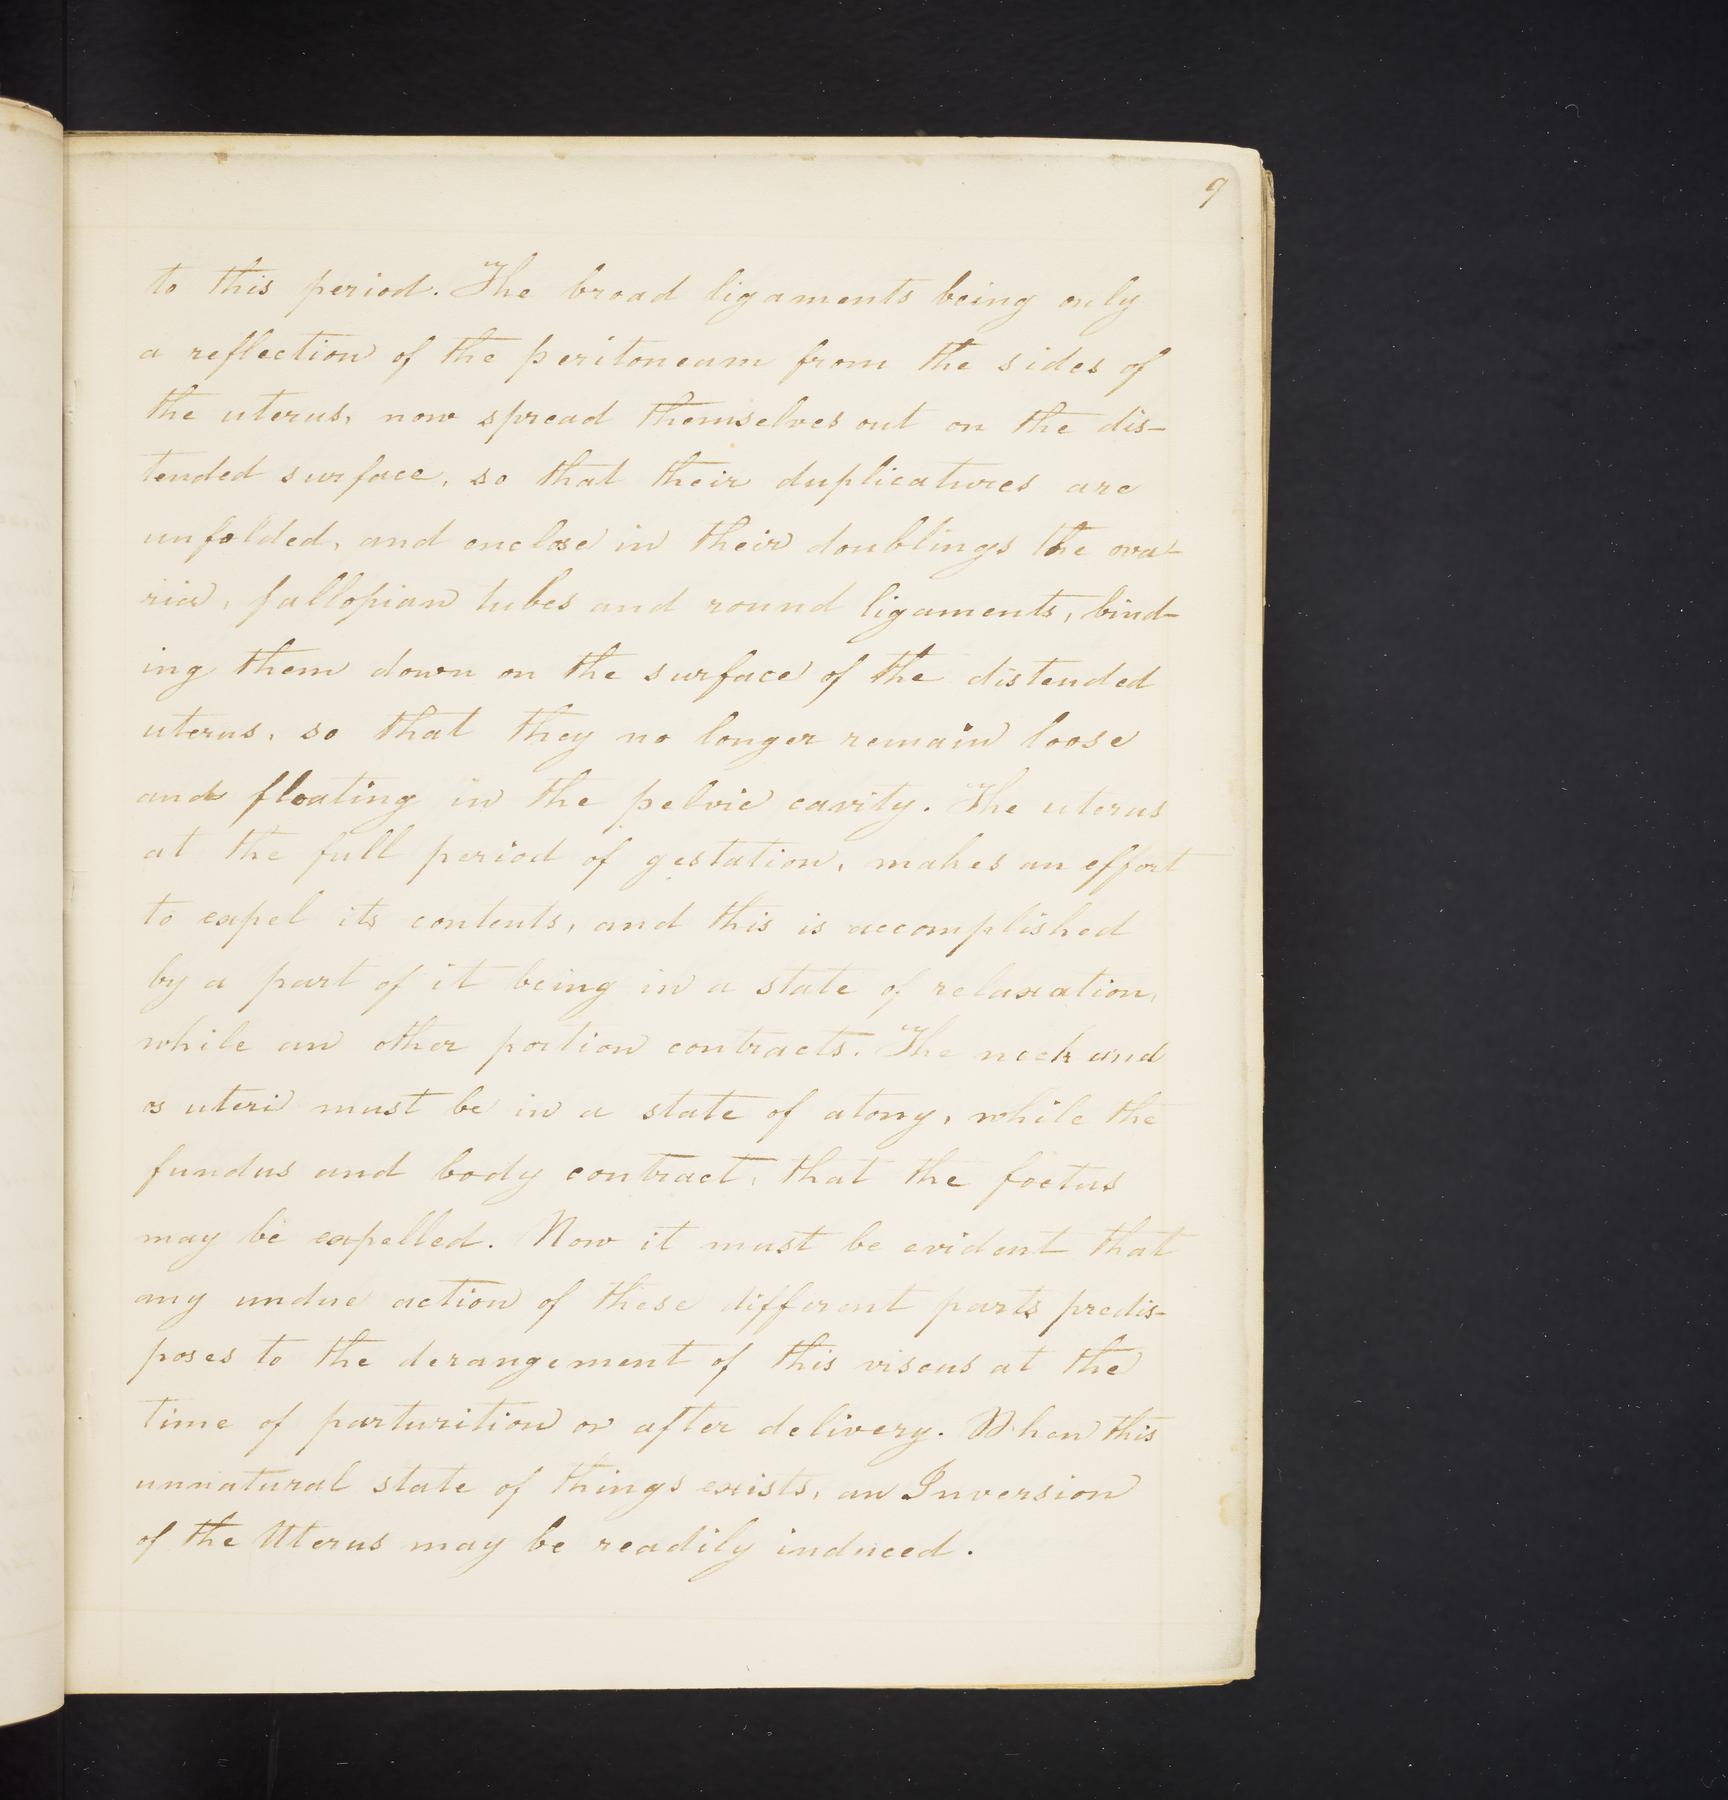 9
to this period. The broad ligaments being only
a reflection of the peritoneum from the sides of
the uterus, now spread themselves out on the dis-
tended surface, so that their duplicatures are
unfolded, and enclose in their doublings the ova-
ria, fallopian tubes and round ligaments, bind-
ing them down on the surface of the distended
uterus, so that they no longer remain loose
and floating in the pelvic cavity. The uterus
at the full period of gestation, makes an effort
to expel its contents, and this is accomplished
by a part of it being in a state of relaxation,
while an other portion contracts. The neck and
os uteri must be in a state of atony, while the
fundus and body contract, that the foetus
may be expelled. Now it must be evident that
any undue action of these different parts predis-
poses to the derangement of this viscus at the
time of parturition or after delivery. When this
unnatural state of things exists, an Inversion
of the Uterus may be readily induced.